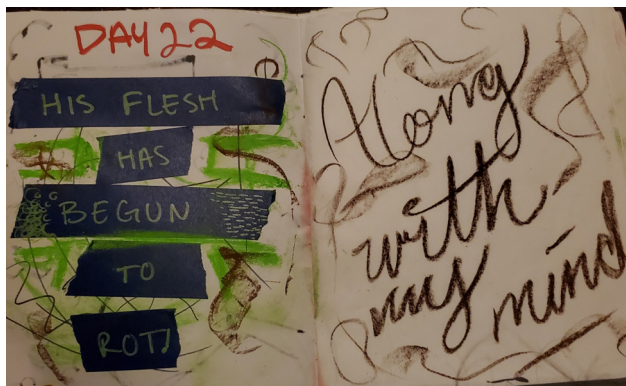 DAY 22
HIS FLESH
HAS
BEGUN
TO
ROT!
Along
with
my mind